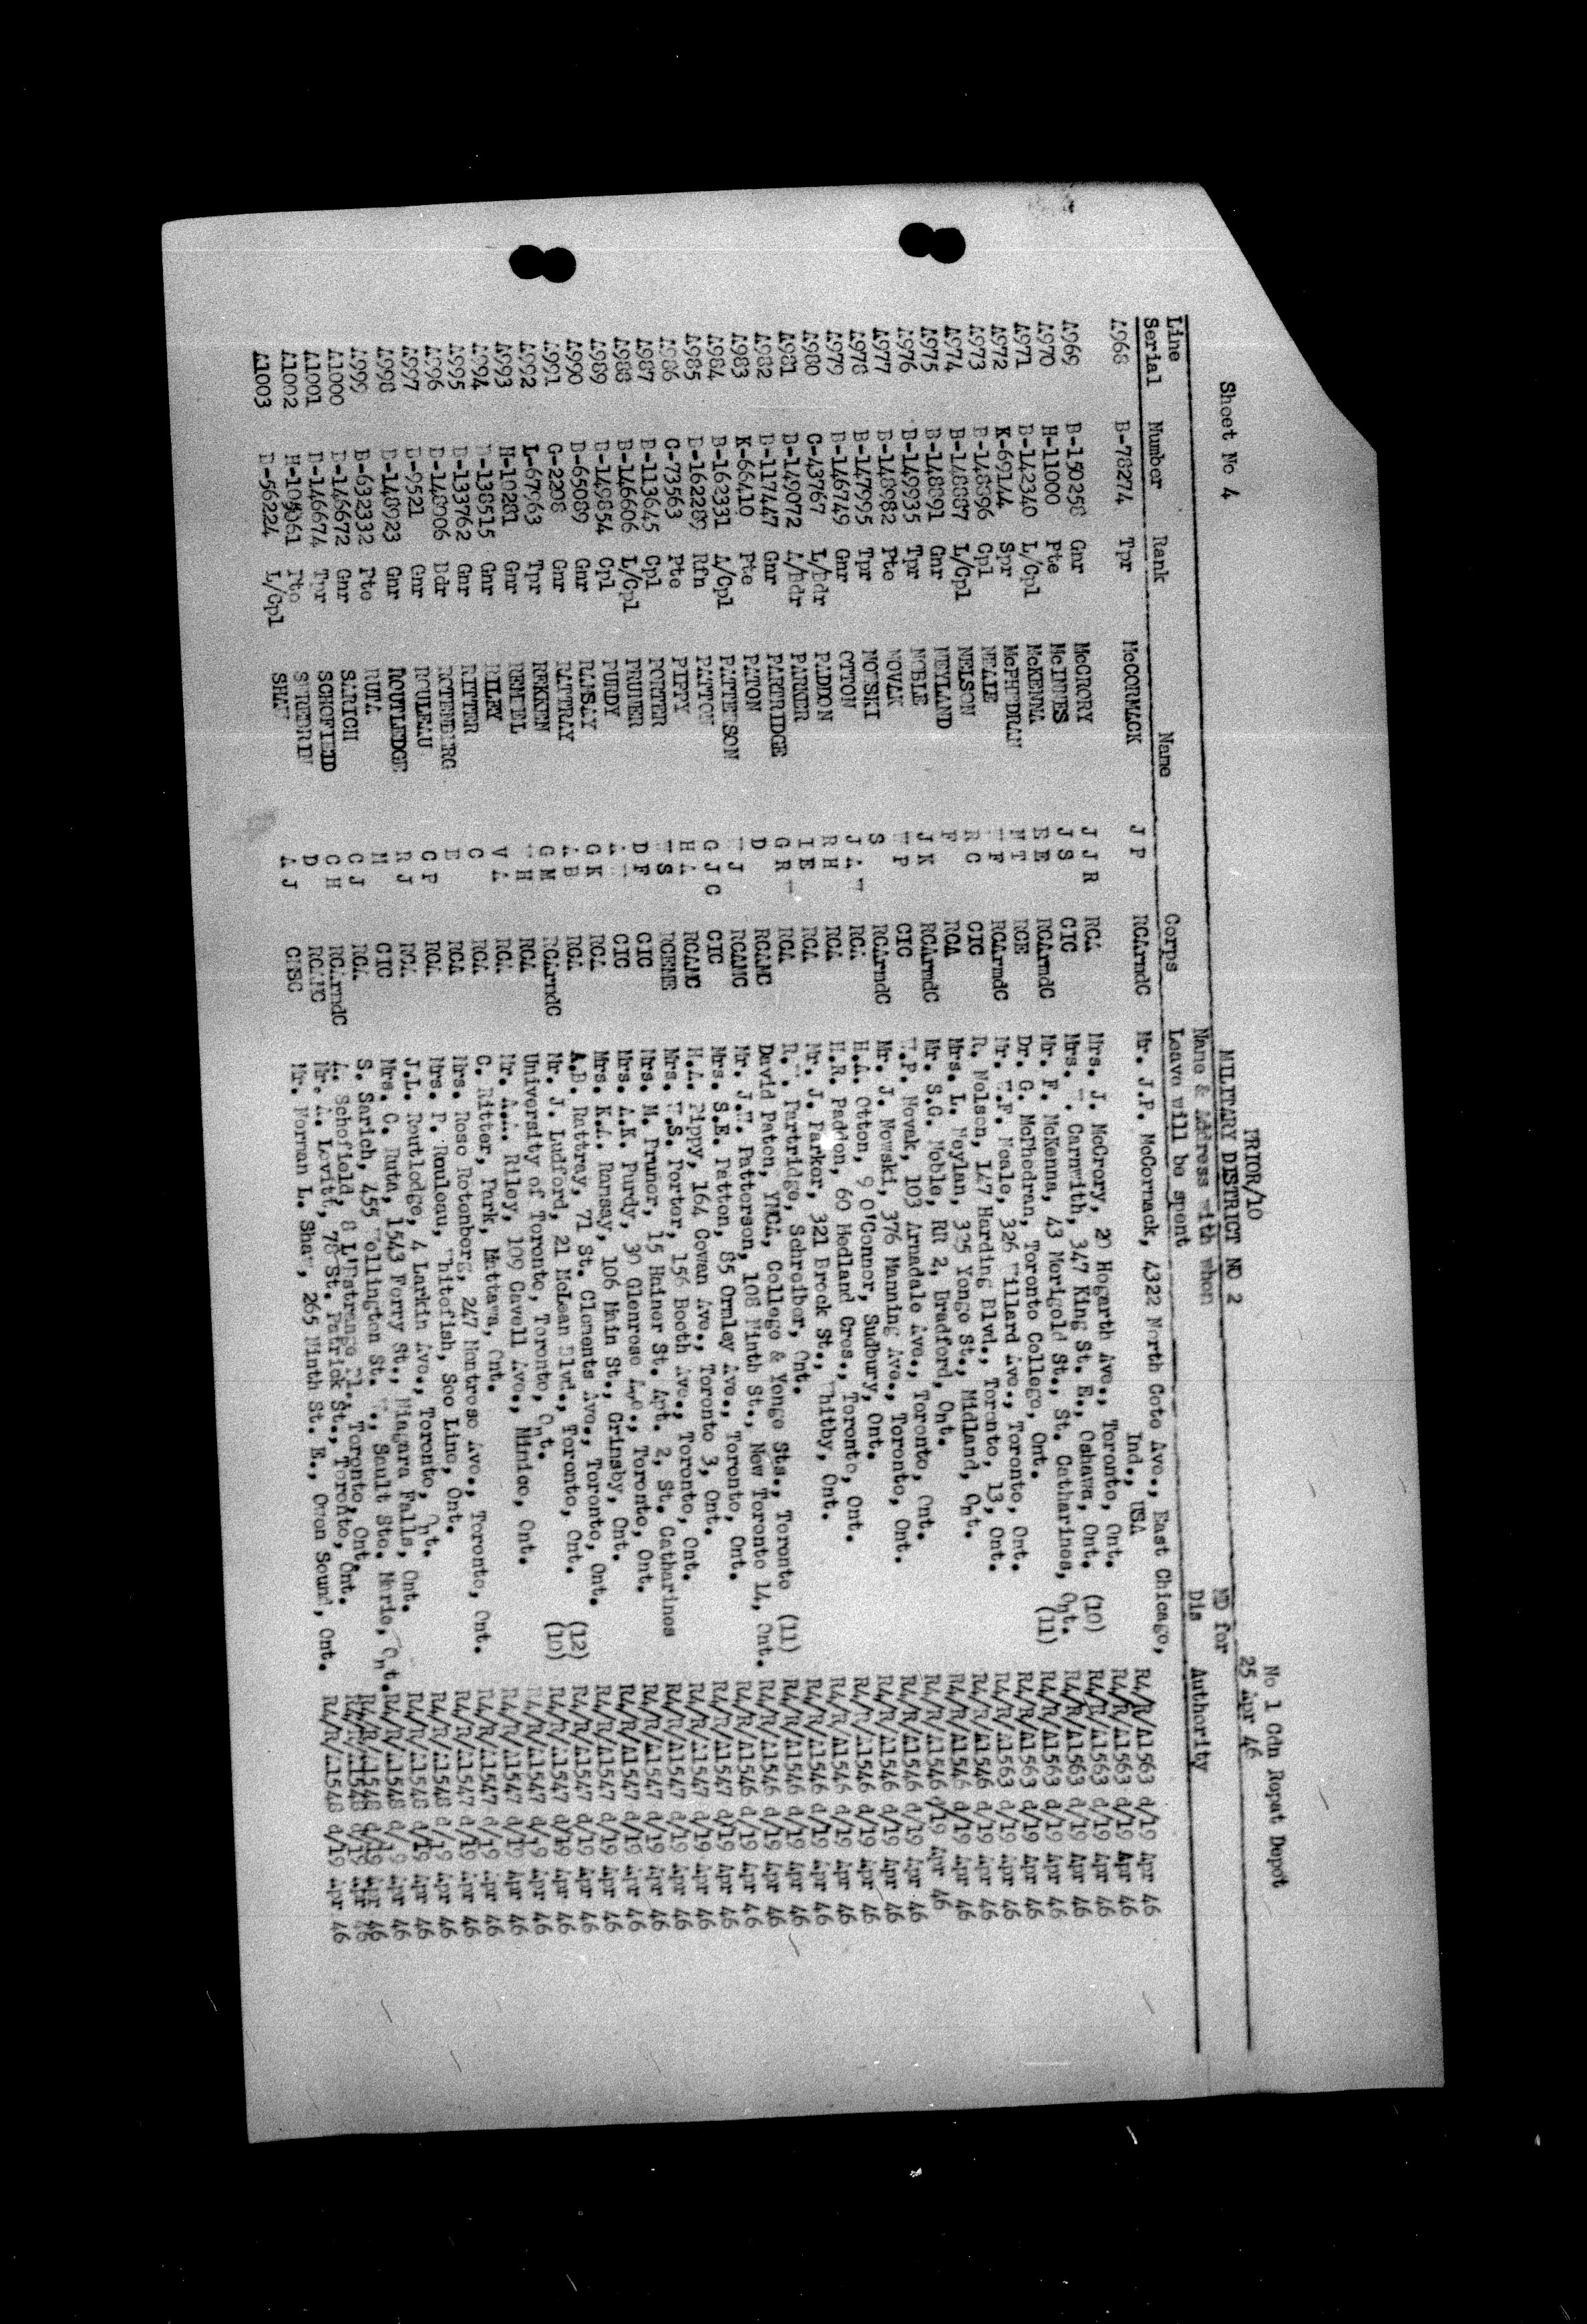 No 1 Cdn Repat Depot
PRIOR/10
25 Apr 46
Sheet No 4
MILITARY DISTRICT NO 2
MD for
Name & Address with whom
Dis
Line
Serial Number Rank Name Corps Leave will be spent Authority
A968 B-78274 Tpr McCORMACK J P RCArmdC Mr. J.P. McCormack, 4322 North Coto Ave., East Chicago, R4/R/A1563 d/19 Apr 46
Ind., USA R4/R/A1563 d/19 Apr 46
A969 B-150258 Gnr McCRORY J J R RCA Mrs. J. McCrory, 20 Hogarth Ave., Toronto, Ont. R4/R/A1563 d/19 Apr 46
A970 H-11000 Pte McINNES J S CIC Mrs. Carnwith, 347 King St. E., Oshawa, Ont. (10) R4/R/A1563 d/19 Apr 46
A971 B-142340 L/Cpl McKENNA E E RCArmdC Mr. F. McKenna, 43 Merigold St., St. Catharines, Ont. R4/R/A1563 d/19 Apr 46
A972 K-69144 Spr McPHEDRAN N T RCE Dr. G. McPhedran, Toronto College, Ont. (11) R4/R/A1563 d/19 Apr 46
A973 B-148896 Cpl NEALE F RCArmdC Mr. W.F. Neale, 326 Willard Ave., Toronto, Ont. R4/R/A1563 d/19 Apr 46
A974 B-148887 L/Cpl NELSON R C CIC R. Nelson, 147 Harding Blvd., Toronto, 13, Ont. R4/R/A1546 d/19 Apr 46
A975 B-148891 Gnr NEYLAND F RCA Mrs. L. Neylan, 325 Yonge St., Midland, Ont. R4/R/A1546 d/19 Apr 46
A976 B-149935 Tpr NOBLE J K RCArmdC Mr. S.G. Noble, RR 2, Bradford, Ont. R4/R/A1546 d/19 Apr 46
A977 B-148982 Pte NOVAK P CIC W.P. Novak, 103 Arnadale Ave., Toronto, Ont. R4/R/A1546 d/19 Apr 46
A978 B-147995 Tpr NOWSKI S RCArmdC Mr. J. Nowski, 376 Manning Ave., Toronto, Ont. R4/R/A1546 d/19 Apr 46
A979 B-146749 Gnr OTTON J A RCA H.A. Otton, 9 O'Connor, Sudbury, Ont. R4/R/A1546 d/19 Apr 46
A980 C-43767 L/Bdr PADDON R H RCA H.R. Paddon, 60 Medland Cres., Toronto, Ont. R4/R/A1546 d/19 Apr 46
A981 B-149072 A/Bdr PARKER I E RCA Mr. J. Parker, 321 Brock St., Whitby, Ont. R4/R/A1546 d/19 Apr 46
A982 B-117447 Gnr PARTRIDGE G R RCA R. Partridge, Schreiber, Ont. R4/R/A1546 d/19 Apr 46
A983 K-66410 Pte PATON D RCAMC David Paton, YMCA, College & Yonge Sts., Toronto (11) R4/R/A1546 d/19 Apr 46
A984 B-162331 A/Cpl PATTERSON J RCAMC Mr. J.W. Patterson, 108 Ninth St., New Toronto 14, Ont. R4/R/A1546 d/19 Apr 46
A985 B-162289 Rfn PATTON G J C CIC Mrs. S.E. Patton, 85 Ormley Ave., Toronto, Ont. R4/R/A1547 d/19 Apr 46
A986 C-73563 Pte PIPPY H A RCAMC H.A. Pippy, 164 Cowan Ave., Toronto 3, Ont. R4/R/A1547 d/19 Apr 46
A987 B-113645 Cpl PORTER S RCEME Mrs. W.S. Porter, 156 Booth Ave., Toronto, Ont. R4/R/A1547 d/19 Apr 46
A988 B-146606 L/Cpl PRUNER D F CIC Mrs. M. Pruner, 15 Hainer St. Apt. 2, St. Catharines R4/R/A1547 d/19 Apr 46
A989 B-149854 Cpl PURDY CIC Mrs. A.K. Purdy, 30 Glenrose Ave., Toronto, Ont. R4/R/A1547 d/19 Apr 46
A990 B-65089 Gnr RAMSAY G K RCA Mrs. K.A. Ramsay, 106 Main St., Grimsby, Ont. R4/R/A1547 d/19 Apr 46
A991 C-2208 Gnr RATTRAY A B RCA A.B. Rattray, 71 St. Clements Ave., Toronto, Ont. R4/R/A1547 d/19 Apr 46
A992 L-67963 Tpr REKKEN G M RCArmdC Mr. J. Ludford, 21 McLean Blvd., Toronto, Ont. (12) R4/R/A1547 d/19 Apr 46
A993 H-10281 Gnr REMPEL H RCA University of Toronto, Toronto, Ont. (10) R4/R/A1547 d/19 Apr 46
A994 B-138515 Gnr RILEY V A RCA Mr. A.A. Riley, 109 Cavell Ave., Mimico, Ont. R4/R/A1547 d/19 Apr 46
A995 B-133762 Gnr RITTER C RCA C. Ritter, Park, Mattawa, Ont. R4/R/A1547 d/19 Apr 46
A996 B-148906 Bdr ROTENBERG E RCA Mrs. Rose Rotenberg, 247 Montrose Ave., Toronto, Ont. R4/R/A1547 d/19 Apr 46
A997 B-9521 Gnr ROULEAU C P RCA Mrs. P. Rouleau, Whitefish, Soo Line, Ont. R4/R/A1548 d/19 Apr 46
A998 B-148923 Gnr ROUTLEDGE R J RCA J.L. Routledge, 4 Larkin Ave., Toronto, Ont. R4/R/A1548 d/19 Apr 46
A999 B-632332 Pte RUTA M CIC Mrs. C. Ruta, 1543 Ferry St., Niagara Falls, Ont. R4/R/A1548 d/19 Apr 46
A1000 B-146672 Gnr SARICH C J RCA S. Sarich, 455 Wellington St. W., Sault Ste. Marie, Ont. R4/R/A1548 d/19 Apr 46
A1001 B-146674 Tpr SCHOFIELD C H RCArmdC A. Schofield, 8 L'Estrange Pl., Toronto, Ont. R4/R/A1548 d/19 Apr 46
A1002 H-105061 Pte D RCAMC Mr. A. Levitt, 78 St. Patrick St., Toronto, Ont.
A1003 B-56224 L/Cpl SHAW A J Mr. Norman L. Shaw, 265 Ninth St. E., Owen Sound, Ont. R4/R/A1548 d/19 Apr 46